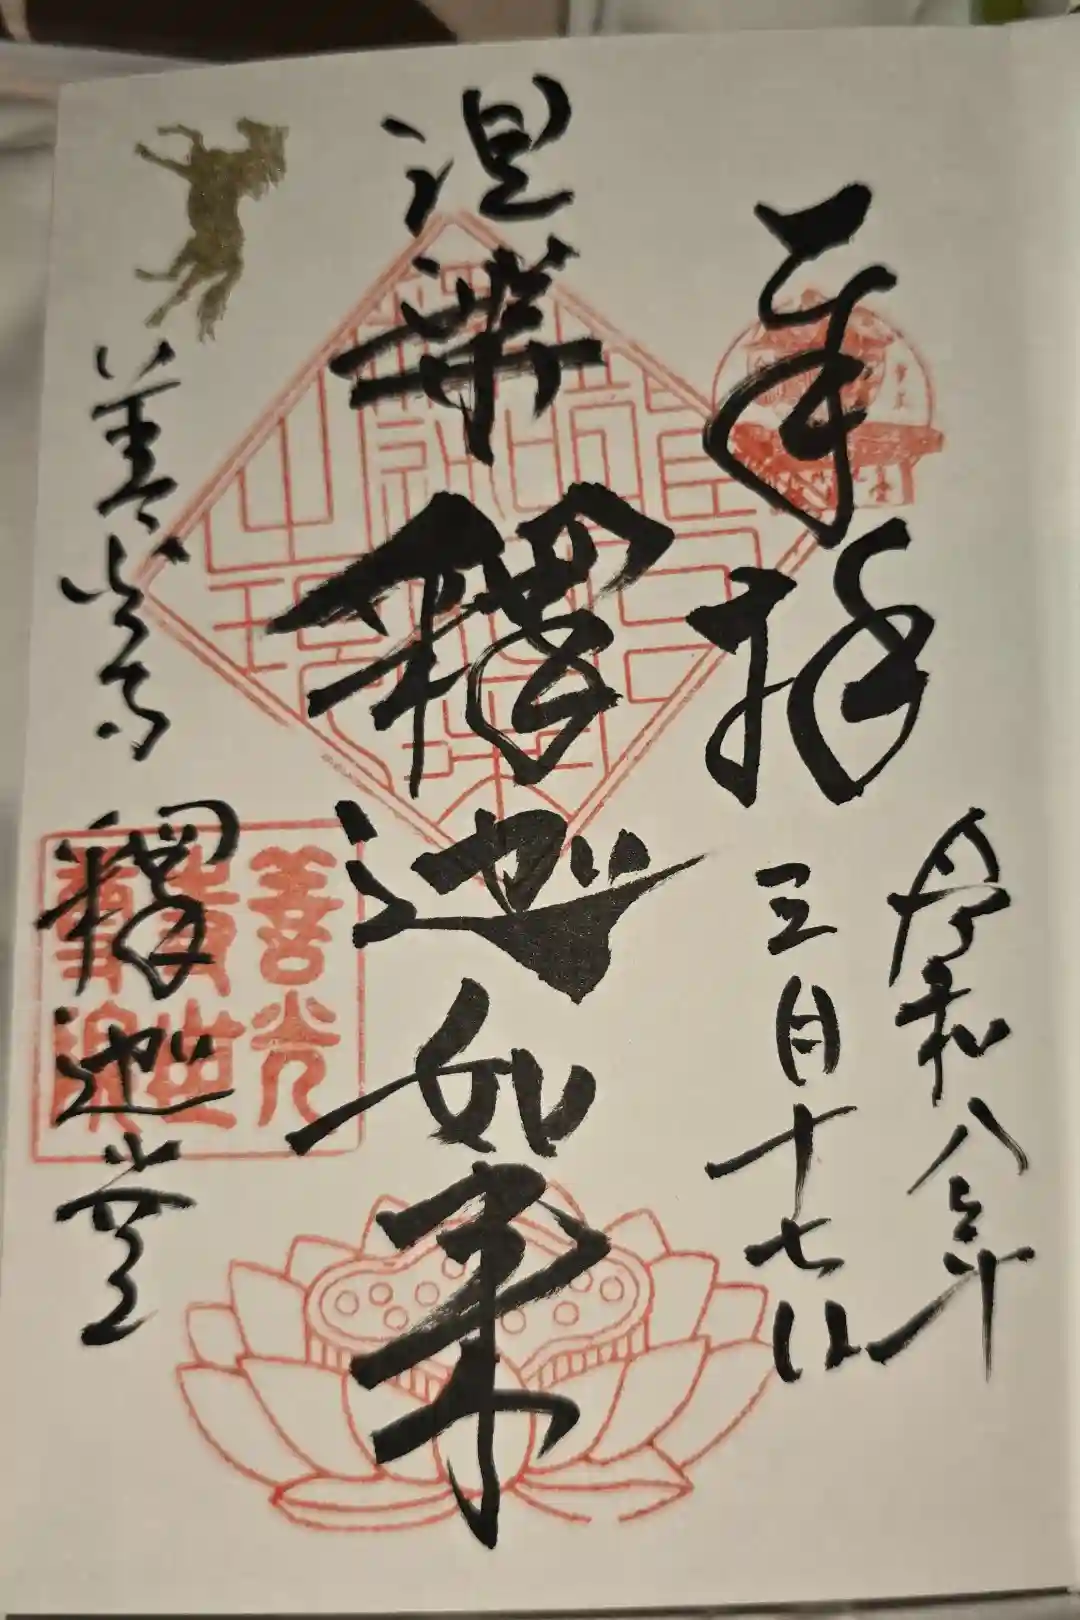 奉拝
令和八年
三月十七日
涅槃釋迦如来
善光寺
釋迦堂
善光